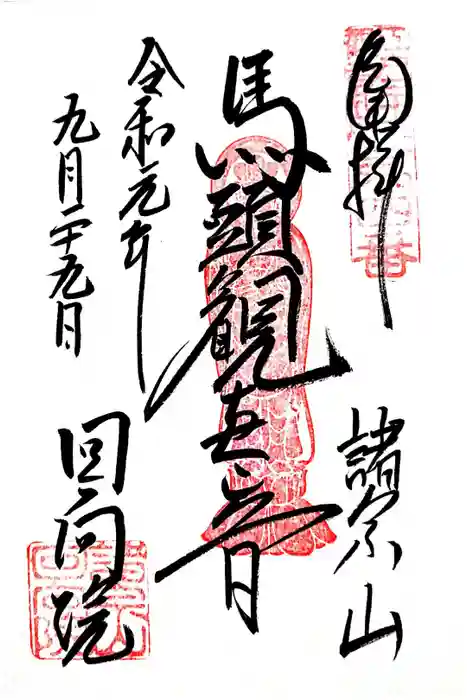 奉拝
諸宗山
馬頭觀世音
令和元年
九月二十九日
回向院